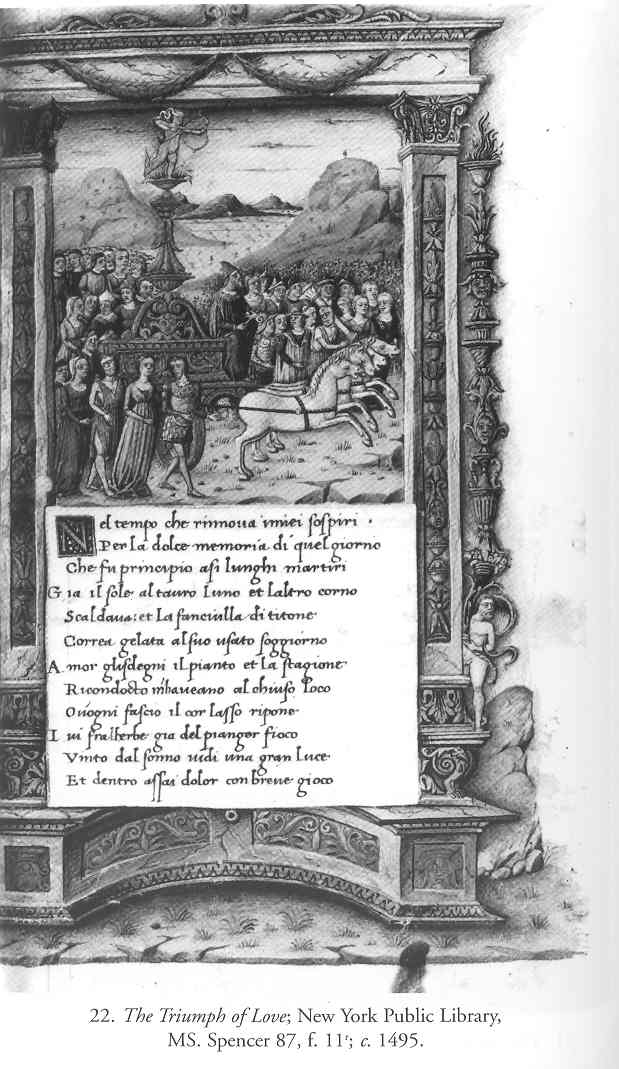 Nel tempo che rinnoua imiei sospiri .
Per la dolce memoria di quel giorno
Che fu principio asi lunghi martiri
Gia il sole al tauro luno et laltro corno
Scaldaua: et La fanciulla di titone
Correa gelata al suo usato soggiorno
Amor glisdegni il pianto et la stagione
Ricondocto mhaueano al chiuso Loco
Ouogni fascio il cor lasso ripone
Iui fralherbe gia del pianger fioco
Vinto dal sonno uidi una gran Luce
Et dentro assai dolor con breue gioco
22. The Triumph of Love; New York Public Library,
MS. Spencer 87, f. 11r; c. 1495.